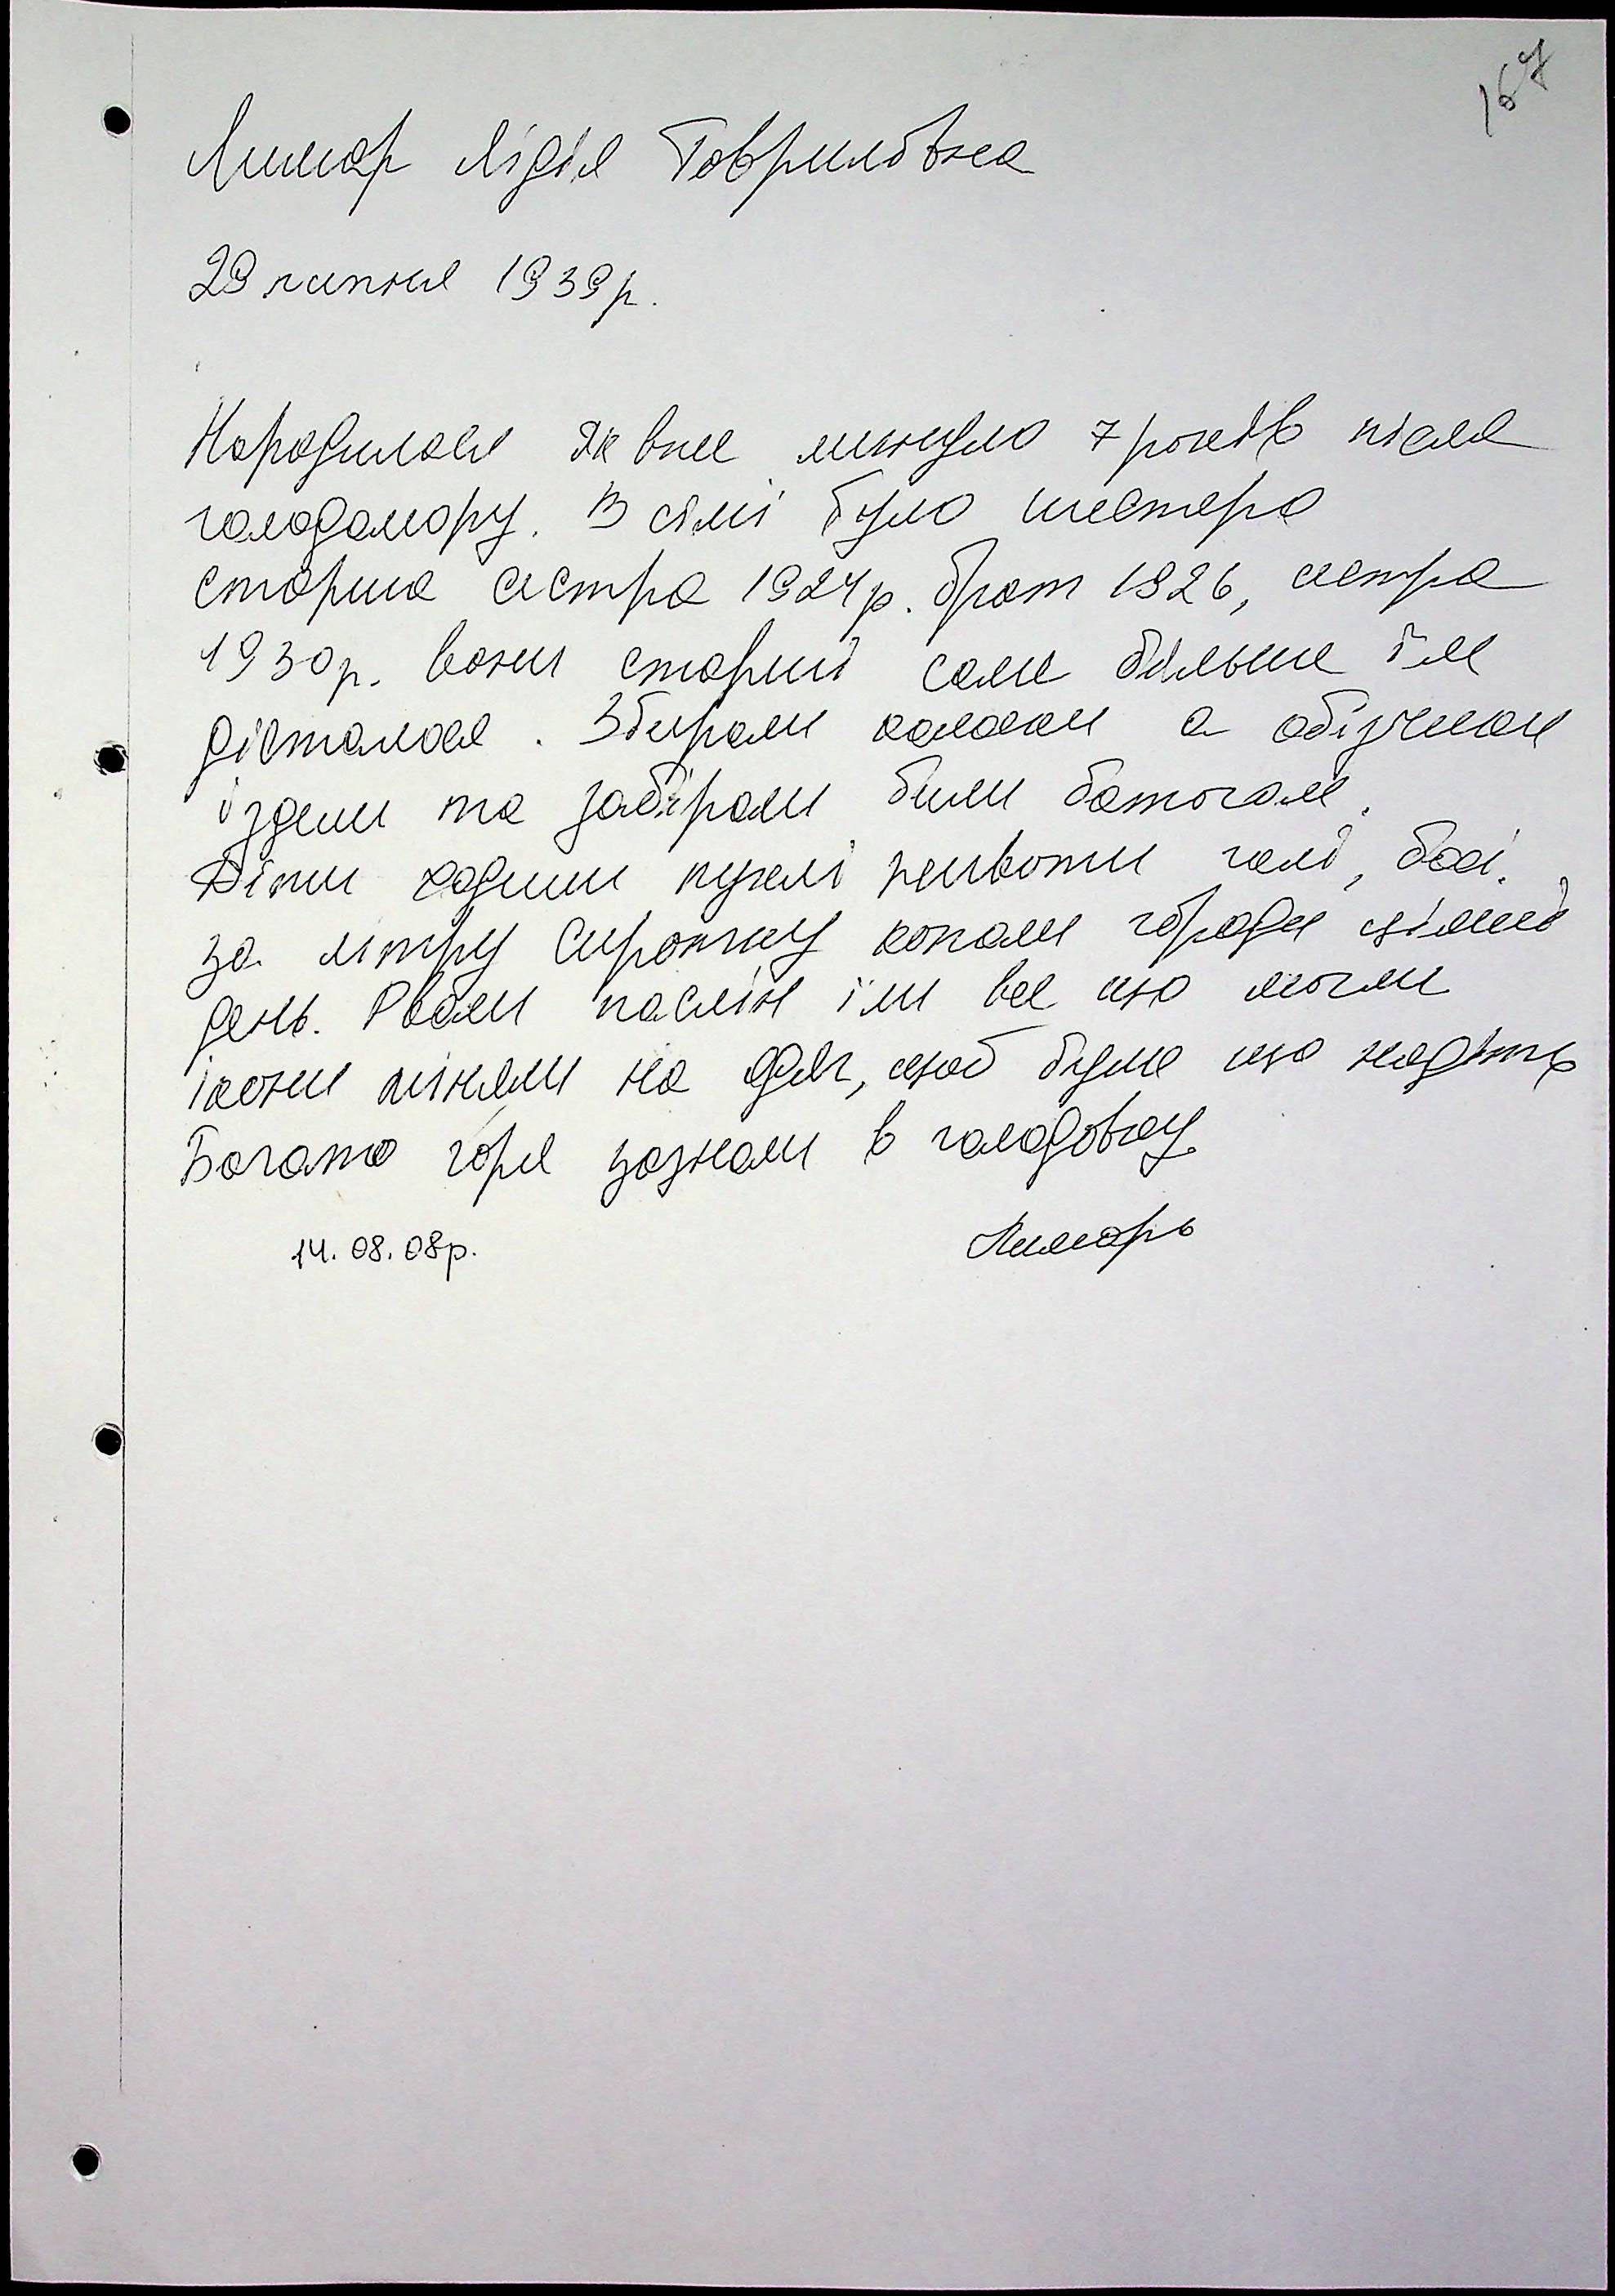 167
Лимар Лідія Гаврилівна
29 липня 1939р.
Народилася як вже минуло 7 років після
голодомору. В сімі було шестеро
старша сестра 1924р. брат 1926, сестра
1930р. вони старші саме більше їм
дісталося. Збирали колоски а обізчики
їздели та забірали били батогами.
Діти ходили пухлі животи голі, босі.
за літру сироватки копали городи цілий
день. Рвали паслін їли все що могли
ікони міняли на одяг, щоб було що надіть
Богато горя зазнали в голодовку.
14.08.08р. Лимарь